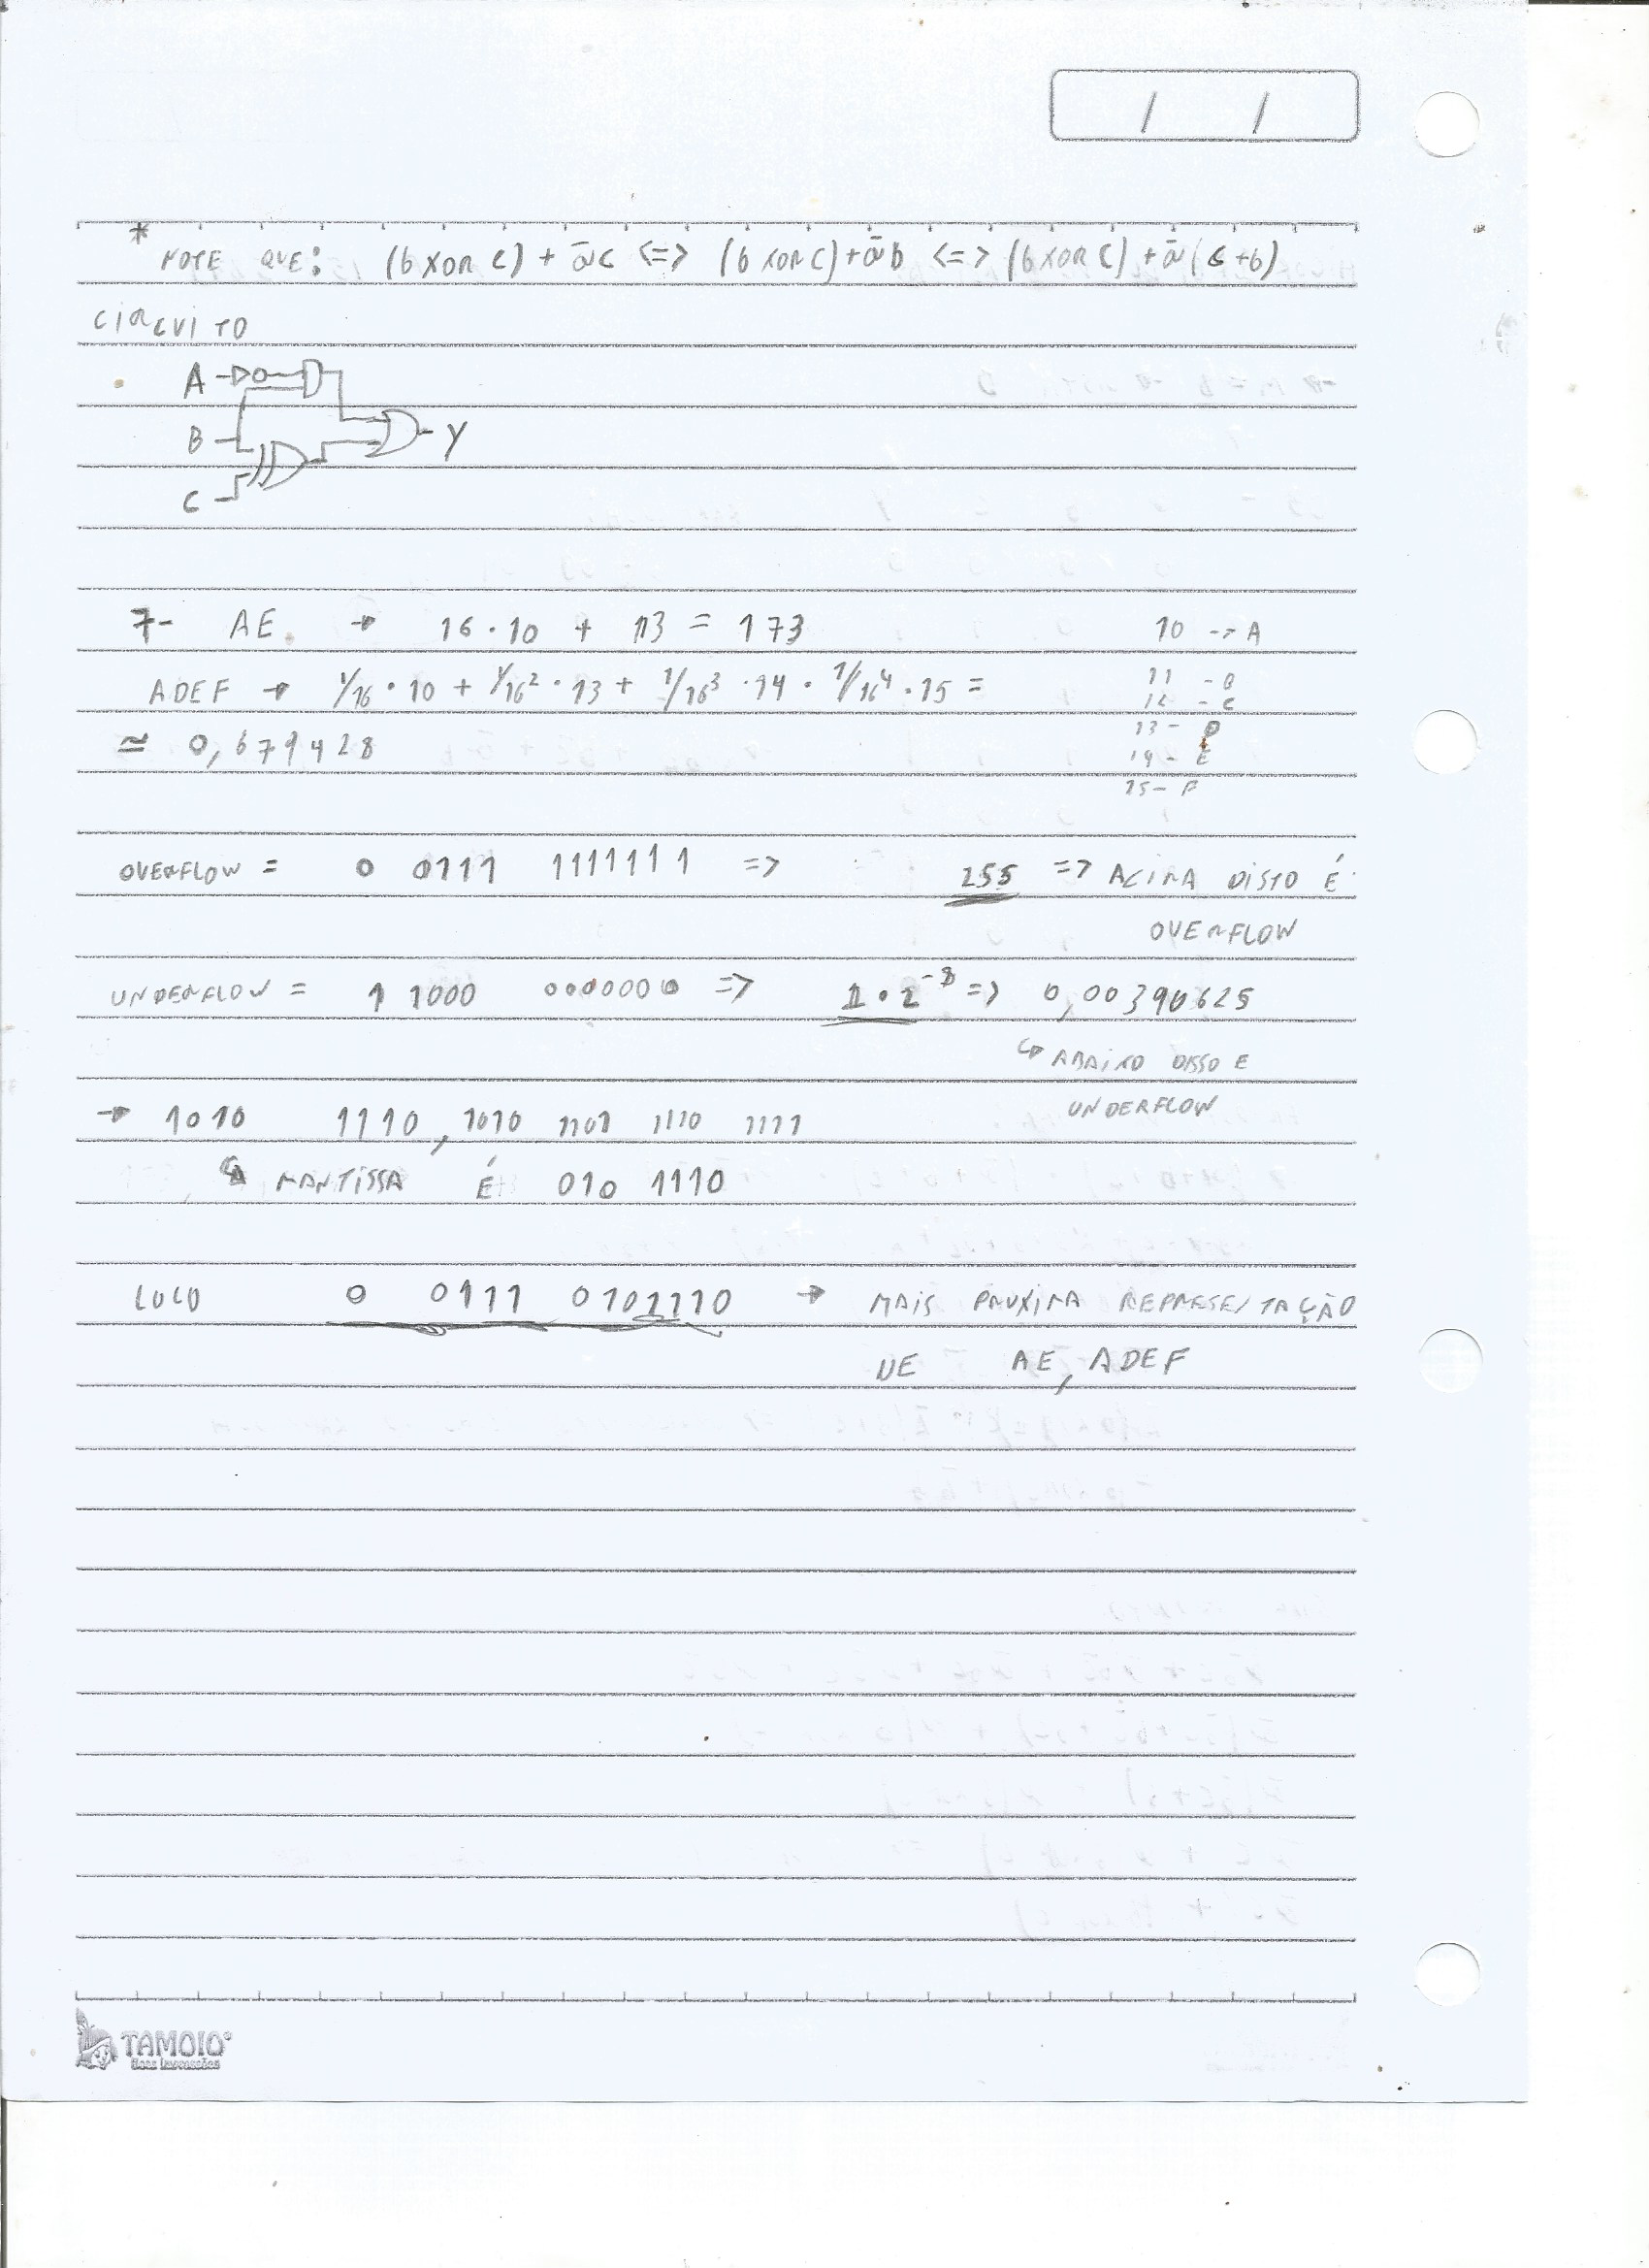 * NOTE QUE: (b XOR C) + āc <=> (b XOR C) + āb <=> (b XOR C) + ā(c+b)
CIRCUITO
A
B
Y
C
7- AE → 16·10 + 13 = 173
10 -> A
ADEF → 1/16 · 10 + 1/16² · 13 + 1/16³ · 14 · 1/16⁴ · 15 =
11 - B
12 - C
≅ 0,679428
13 - D
14 - E
15 - F
OVERFLOW = 0 0111 1111111 => 255 => ACIMA DISTO É
OVERFLOW
UNDERFLOW = 1 1000 0000000 => 1·2⁻⁸ => 0,00390625
↳ ABAIXO DISSO E
UNDERFLOW
→ 1010 1110, 1010 1101 1110 1111
↳ MANTISSA É 010 1110
LOGO 0 0111 0101110 → MAIS PROXIMA REPRESE/TAÇÃO
DE AE, ADEF
TAMOIO
Boas Impressões